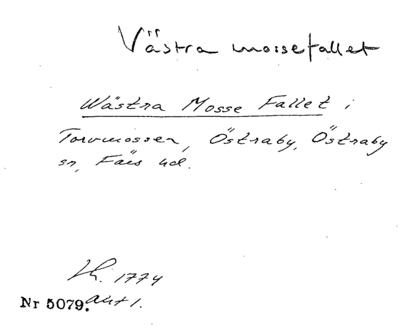 Västra mossefallet
Wästra Mosse Fallet i
Torvmossen, Östraby, Östraby
sn, Färs hd.
1774
Nr 5079. akt 1.